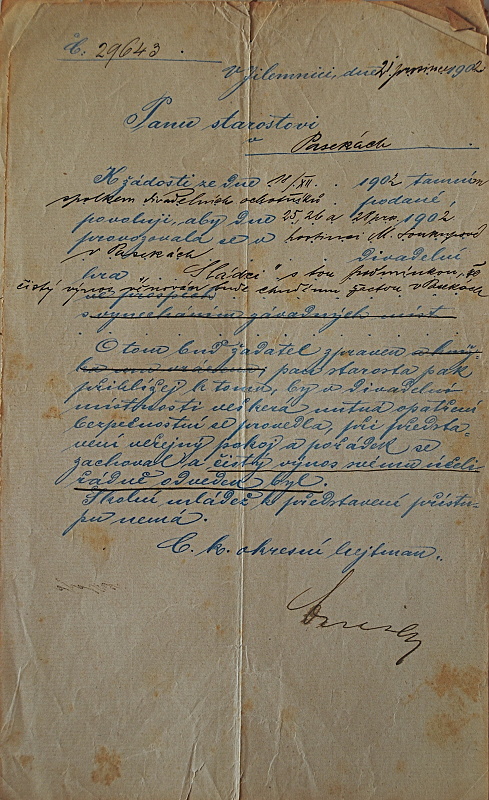 Č: 29643
V Jilemnici, dne 21. prosince 1902
Panu starostovi
v Pasekách
K žádosti ze dne 11/XII. 1902 tamním
spolkem divadelních ochotníků podané,
povoluji, aby dne 25, 26 a 1902
provozovala se v hostinci M.
v Pasekách divadelní
hra " s tou podmínkou, že
čistý výnos věnován bude chudému žactvu v Pasekách
ve prospěch
s vynecháním závadných míst
O tom buď žadatel zpraven a
pan starosta pak
přihlížej k tomu, by v divadelní
místnosti veškerá nutná opatření
bezpečnostní se provedla, při předsta-
vení veřejný pokoj a pořádek se
zachoval a čistý výnos svému účeli
řádně odveden byl.
Školní mládež k představení přístu-
pu nemá.
C. k. okresní hejtman.